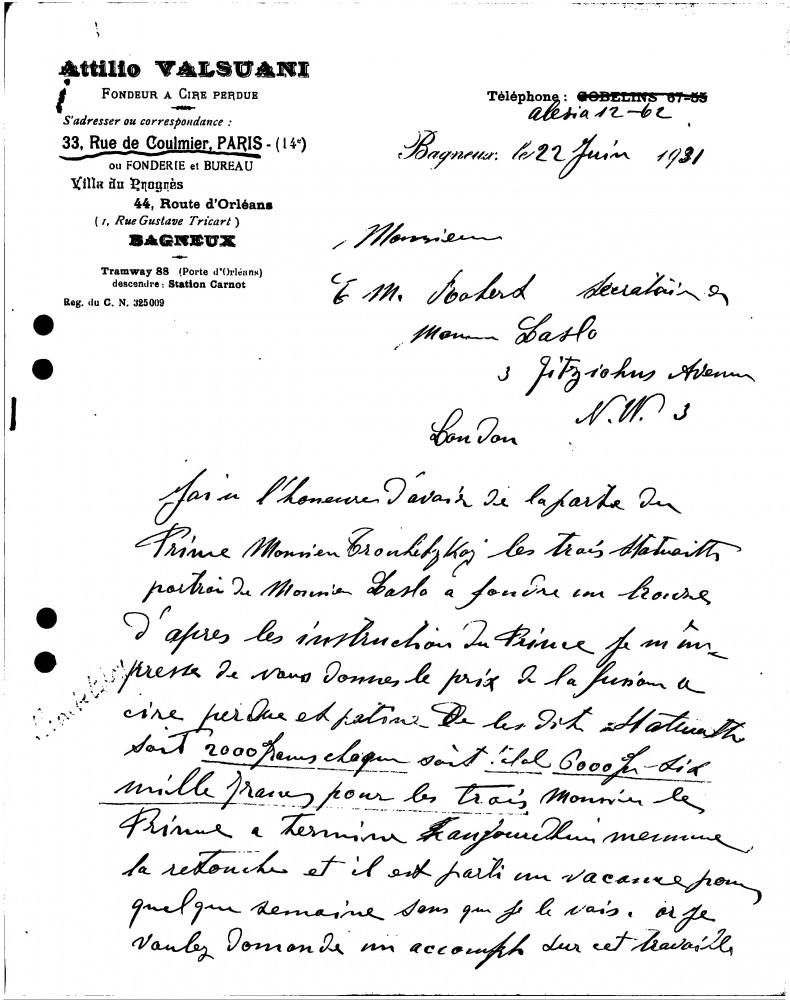 Attilio VALSUANI
FONDEUR A CIRE PERDUE
S'adresser ou correspondance :
33, Rue de Coulmier, PARIS - (14e)
OU FONDERIE et BUREAU
Villa du Progrès
44, Route d'Orléans
(1, Rue Gustave Tricart)
BAGNEUX
Tramway 88 (Porte d'Orléans)
descendre : Station Carnot
Reg. du C. N. 325009
Téléphone : GOBELINS 67-55
alesia 12-62
Bagneux. le 22 Juin 1931
Monsieur
E M. Robert Secrétaire de
Monsieur Laslo
3 Fitziohns Avenue
N.W. 3
London
J'ai u l'honeure d'avair de la parte du
Prince Monsieu Troubetzkoj les trois Statuaitts
portrai de Monsieu Laslo a fondre un bronze
D'apres les instruction du Prince je m'em-
presse de vous donner le prix de la fusion a
cire perdue et patine De les dit Statuaitts
soit 2000 frans chaque soit total 6000 fr-six
mille frans pour les trois Monsieu le
Prince a termine aujourdhui memme
la retouche et il est parti un vacance pour
quelque semaine sans que je le vais. or je
voulez domande un accompte sur cet travaille